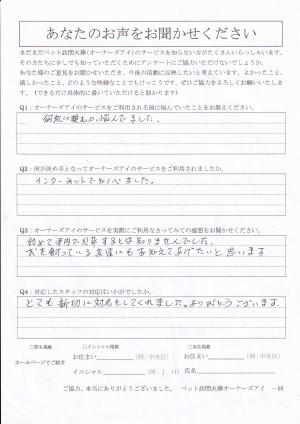 あなたのお声をお聞かせください
まだまだペット訪問火葬(オーナーズアイ)のサービスを知らない方がたくさんいらっしゃいます。
その方たちに少しでも知っていただくためにアンケートにご協力いただけないでしょうか。
あなた様のご意見をお聞かせいただき、今後の活動に反映したいと考えています。よかったこと、
嬉しかったこと、どのような些細なことでもけっこうです。ぜひご協力をよろしくお願いいたしま
す。(できるだけ具体的に書いていただけると助かります)
Q1:オーナーズアイのサービスをご利用される前に悩んでいたことをお教えください。
何処に頼むか、悩んでました。
Q2:何が決め手となってオーナーズアイのサービスをご利用されましたか。
インターネットで知らべました。
Q3:オーナーズアイのサービスを実際にご利用なさってみての感想をお聞かせください。
初めて車内で火葬するとは知りませんでした。
犬を飼っている友達にもお知えてあげたいと思います
Q4:対応したスタッフの対応はいかがでしたか。
とても親切に対応もしてくれました。ありがとうございます。
□匿名掲載 □イニシャル掲載 □実名掲載
お住まい (例:中央区) お住まい (例:中央区)
ホームページでご紹介
イニシャル (例:J.H) 氏名
ご協力、本当にありがとうございました。 ペット訪問火葬オーナーズアイ 一同